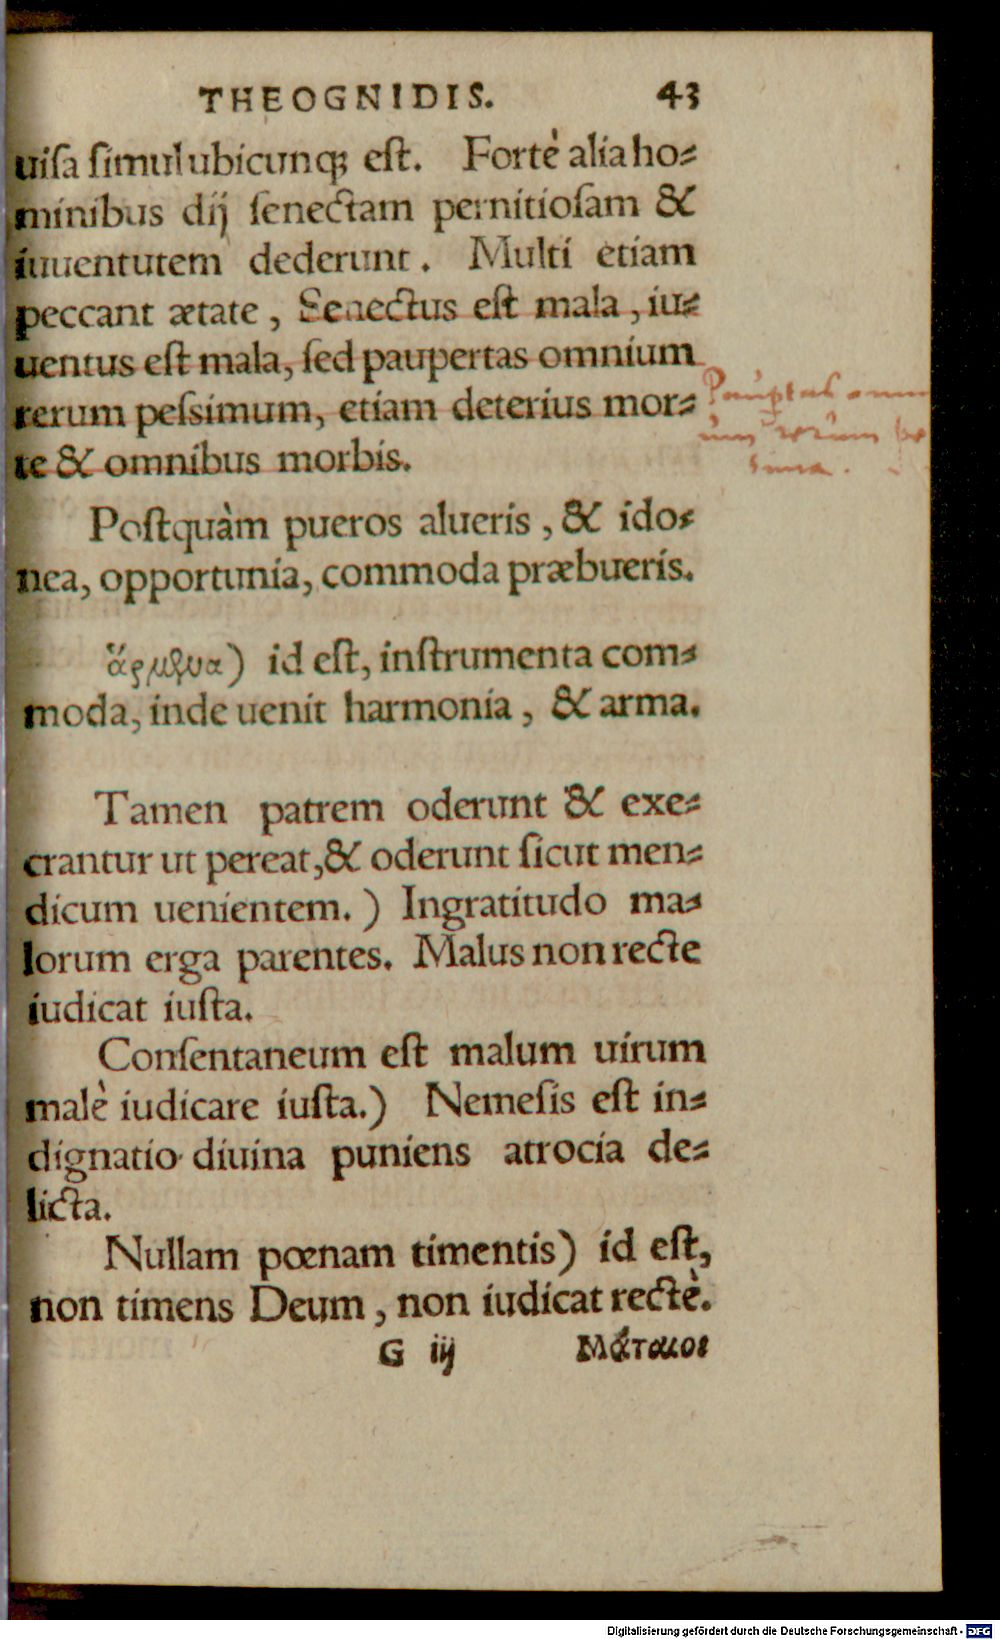 THEOGNIDIS. 43
uiſa ſimul ubicunq; eſt. Fortè alia ho-
minibus dij ſenectam pernitioſam &
iuuentutem dederunt. Multi etiam
peccant ætate, Senectus eſt mala, iu-
uentus eſt mala, ſed paupertas omnium
rerum peſsimum, etiam deterius mor-
te & omnibus morbis.
Paup̱tas omni
um rerum
sima.
Poſtquàm pueros alueris, & ido-
nea, opportunia, commoda præbueris.
ἅρμενα) id eſt, inſtrumenta com-
moda, inde uenit harmonia, & arma.
Tamen patrem oderunt & exe-
crantur ut pereat, & oderunt ſicut men-
dicum uenientem.) Ingratitudo ma-
lorum erga parentes. Malus non recte
iudicat iuſta.
Conſentaneum eſt malum uirum
malè iudicare iuſta.) Nemeſis eſt in-
dignatio diuina puniens atrocia de-
licta.
Nullam pœnam timentis) id eſt,
non timens Deum, non iudicat rectè.
G iij Μάταιοι
Digitalisierung gefördert durch die Deutsche Forschungsgemeinschaft - DFG